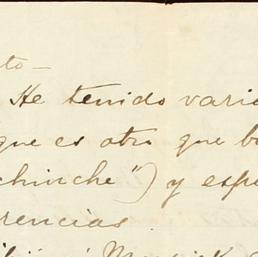 to—
He tenido vario
que es otro que b
chinche") y espe
rencias.